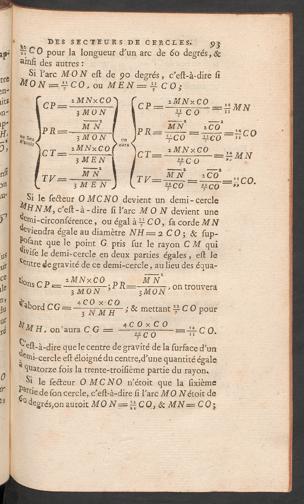 DES SECTEURS DE CERCLES. 93
CO pour la longueur d'un arc de 60 degrés, &
ainsi des autres :
Si l'arc MON est de 90 degrés, c'est-à-dire si
MON = CO, ou MEN = CO;
CP = 2 MN×CO / 3 MON CP = 2 MN×CO / CO = MN
PR = MN² / 3 MON PR = MN² / CO = 2CO² / CO = CO
on aura
CT = 2 MN×CO / 3 MEN CT = 2 MN×CO / CO = MN
TV = MN² / 3 MEN TV = MN² / CO = 2CO² / CO = CO.
Si le secteur OMCNO devient un demi-cercle
MHNM, c'est-à-dire si l'arc MON devient une
demi-circonférence, ou égal à CO, sa corde MN
deviendra égale au diamètre NH = 2 CO; & sup-
posant que le point G pris sur le rayon CM qui
divise le demi-cercle en deux parties égales, est le
centre de gravité de ce demi-cercle, au lieu des équa-
tions CP = 2 MN×CO / 3 MON; PR = MN² / 3 MON, on trouvera
d'abord CG = 4 CO × CO / 3 NMH; & mettant CO pour
NMH, on aura CG = 4 CO × CO / CO = CO.
C'est-à-dire que le centre de gravité de la surface d'un
demi-cercle est éloigné du centre, d'une quantité égale
à quatorze fois la trente-troisième partie du rayon.
Si le secteur OMCNO n'étoit que la sixième
partie de son cercle, c'est-à-dire si l'arc MON étoit de
60 degrés, on auroit MON = CO, & MN = CO;